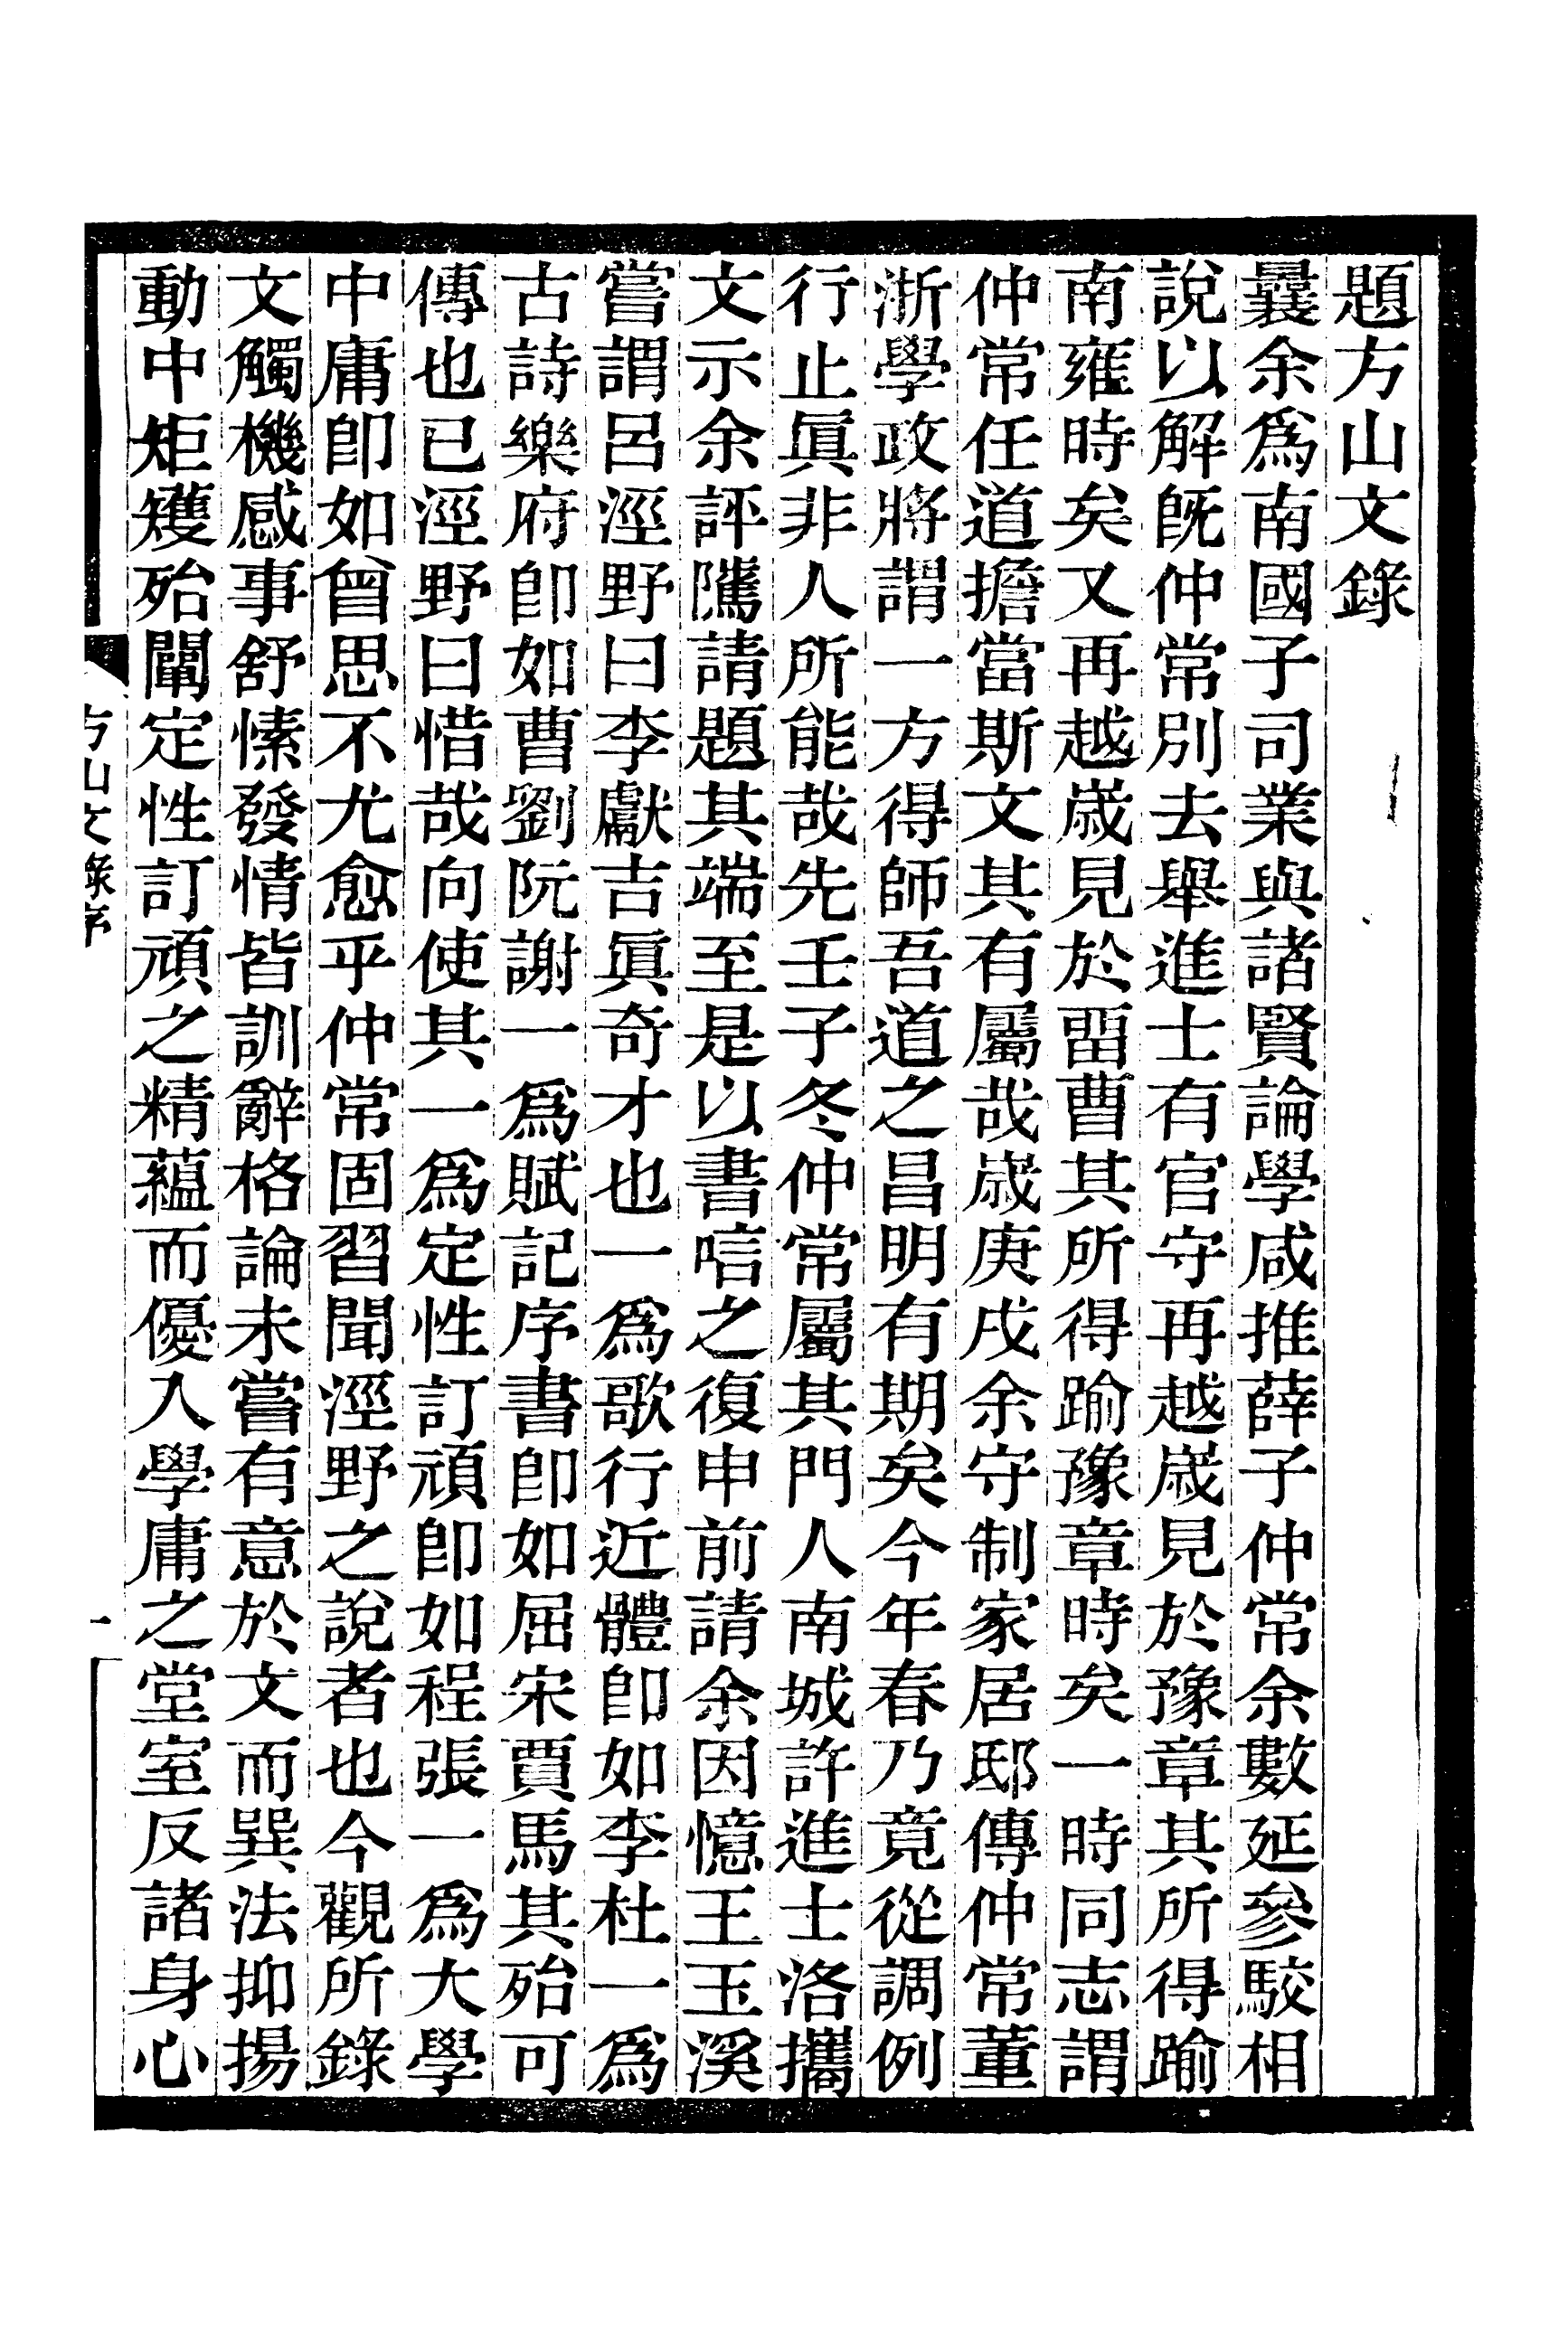 題方山文錄
曩余爲南國子司業與諸賢論學咸推薛子仲常余數延參駮相
說以解旣仲常別去舉進士有官守再越歲見於豫章其所得踰
南雍時矣又再越歲見於畱曹其所得踰豫章時矣一時同志謂
仲常任道擔當斯文其有屬哉歲庚戌余守制家居邸傳仲常董
浙學政將謂一方得師吾道之昌明有期矣今年春乃竟從調例
行止眞非人所能哉先壬子冬仲常屬其門人南城許進士洛攜
文示余評騭請題其端至是以書唁之復申前請余因憶王玉溪
嘗謂呂涇野曰李獻吉眞奇才也一爲歌行近體卽如李杜一爲
古詩樂府卽如曹劉阮謝一爲賦記序書卽如屈宋賈馬其殆可
傳也已涇野曰惜哉向使其一爲定性訂頑卽如程張一爲大學
中庸卽如曾思不尤愈乎仲常固習聞涇野之說者也今觀所錄
文觸機感事舒愫發情皆訓辭格論未嘗有意於文而巽法抑揚
動中矩矱殆闡定性訂頑之精蘊而優入學庸之堂室反諸身心
方山文錄序
一